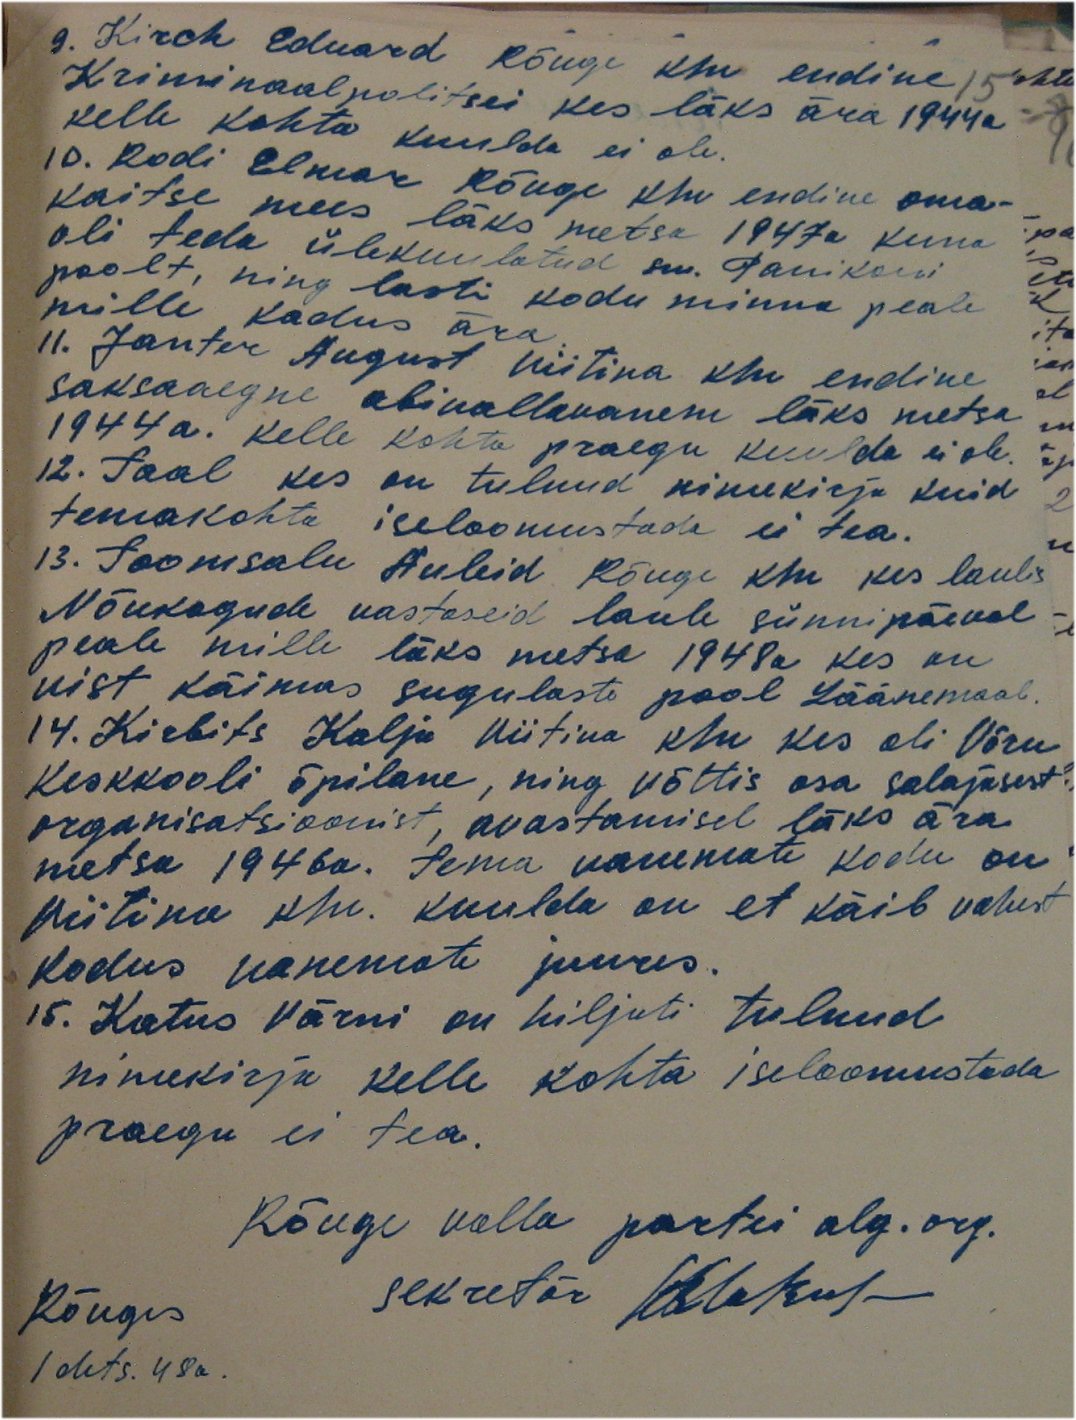 9. Kirch Eduard Rõuge khn endine
Kriminaalpolitsei kes läks ära 1944a
kelle kohta kuulda ei ole.
10. Rodi Elmar Rõuge khn endine oma-
kaitse mees läks metsa 1947a kuna
oli teda ülekuulatud sm. Panikovi
poolt, ning lasti kodu minna peale
mille kadus ära.
11. Janter August Viitina khn endine
saksaaegne abivallavanem läks metsa
1944a. kelle kohta praegu kuulda ei ole.
12. Saal kes on tulnud nimekirja kuid
temakohta iseloomustada ei tea.
13. Soomsalu Auleid Rõuge khn kes laulis
Nõukogude vastaseid laule sünnipäeval
peale mille läks metsa 1948a kes on
vist käimas sugulaste pool Läänemaal.
14. Kirbits Kalju Viitina khn kes oli Võru
Keskkooli õpilane, ning võttis osa salajasest
organisatsioonist, avastamisel läks ära
metsa 1946a. Tema vanemate kodu on
Viitina khn. kuulda on et käib vahest
kodus vanemate juures.
15. Katus Värni on hiljuti tulnud
nimekirja kelle kohta iseloomustada
praegu ei tea.
Rõuge valla partei alg. org.
sekretär
Rõuges
1 dets. 48a.
15